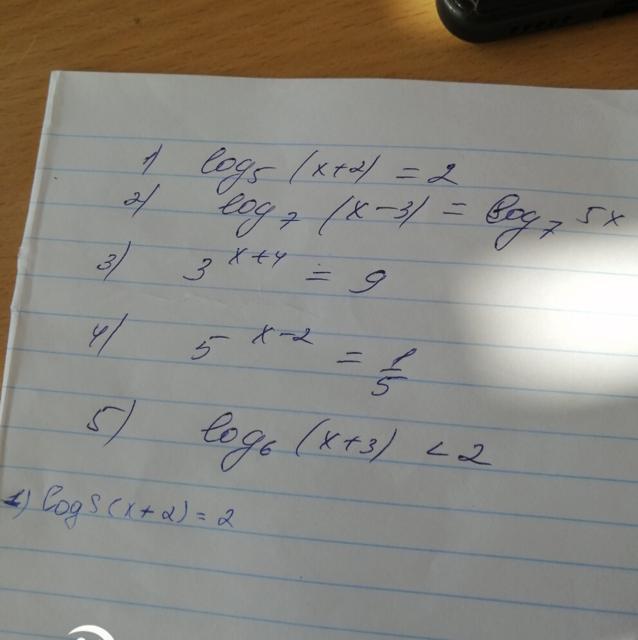 1) log₅ (x+2) = 2
2) log₇ (x-3) = log₇ 5x
3) 3^{x+4} = 9
4) 5^{x-2} = 1/5
5) log₆ (x+3) < 2
1) log5(x+2) = 2